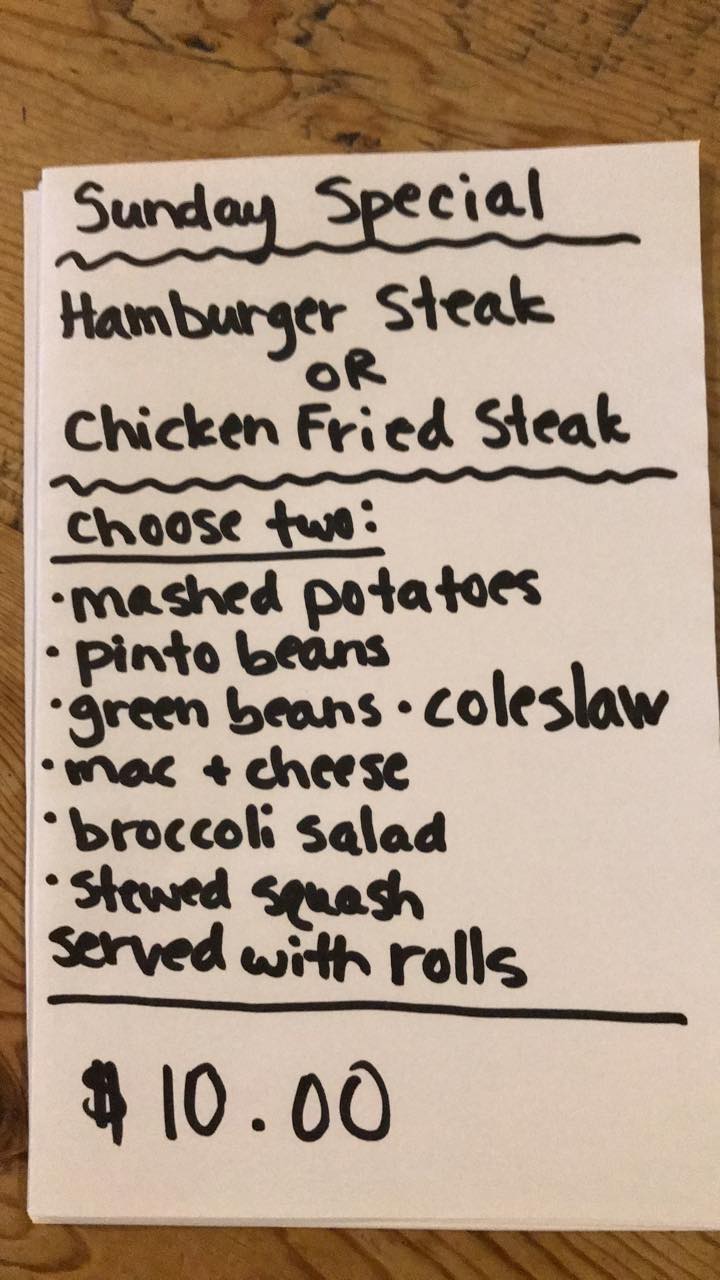 Sunday Special
Hamburger Steak
OR
Chicken Fried Steak
choose two:
• mashed potatoes
• pinto beans
• green beans • coleslaw
• mac + cheese
• broccoli salad
• stewed squash
served with rolls
$10.00